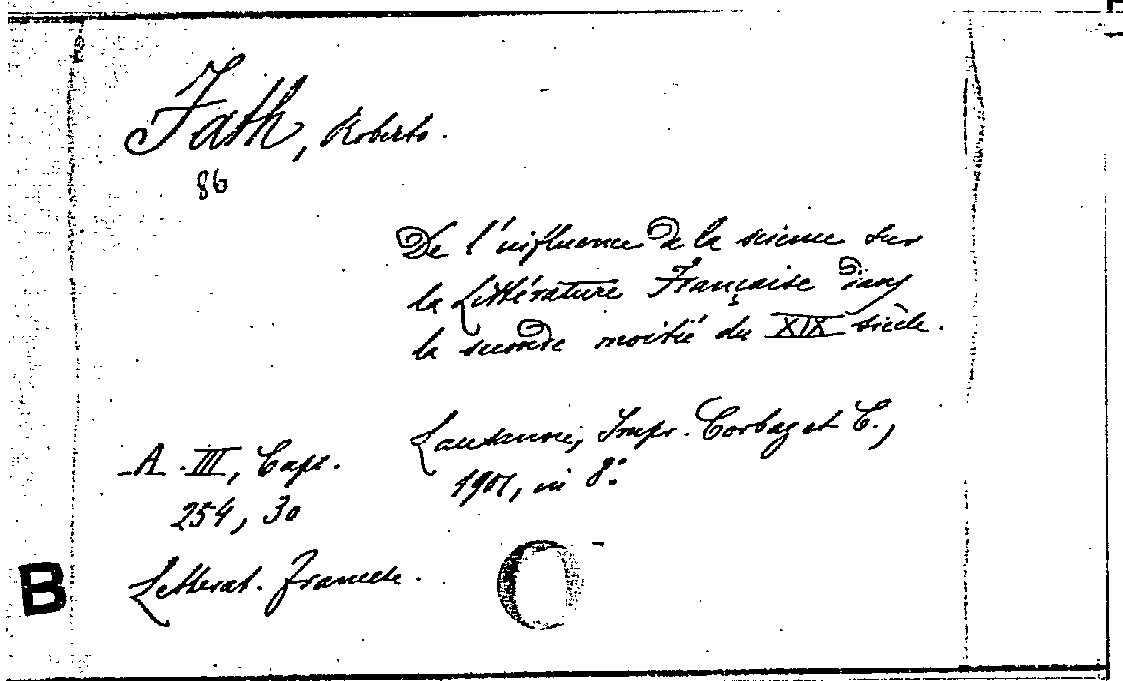 Fath, Roberto.
86
De l'influence de la science sur
la Littérature Française dans
la seconde moitié du XIX siècle.
Lausanne, Impr. Corbaz et C.,
1901, in 8º
A. III, Caps.
254, 30
Letterat. francese.
B